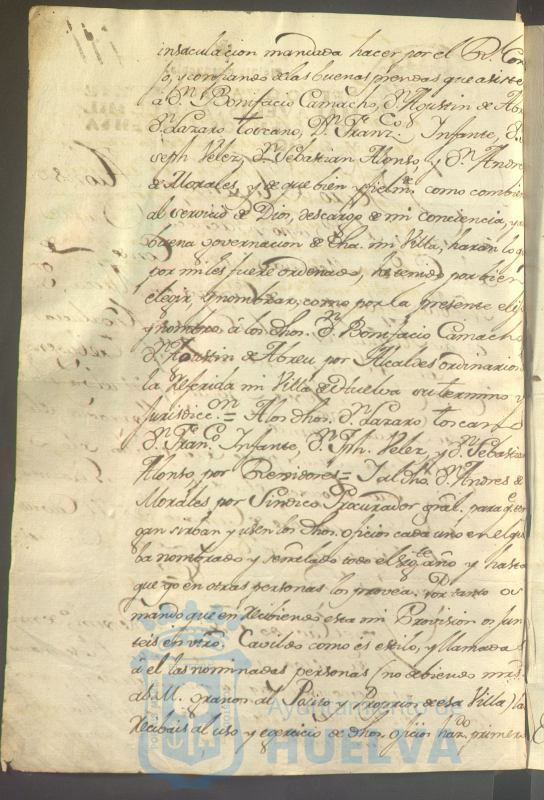 insaculacion mandada hacer por el Rl. Con
jo, y confiando de las buenas prendas que asiste
a Dn. Bonifacio Camacho, Dn. Agustin de Abr
Dn. Lazaro toscano, Dn. Franco. Infante, D.
seph Velez, Dn. Sebastian Alonso, y Dn. Andre
de Morales, y de que bien y fielmte. como combien
al servicio de Dios, descargo de mi conciencia, y a
buena governacion de dha. mi Villa, haran lo q
por mi les fuere ordenado, he tenido por bien
elegir, y nombrar, como por la presente elijo
y nombro á los dhos. Dn. Bonifacio Camacho
Dn. Agustin de Abreu por Alcaldes ordinarios
la referida mi Villa de Huelva su termino y
Jurisdiccon. = A los dhos. Dn. Lazaro toscano
Dn. Franco. Infante, Dn. Jph. Velez, y Dn. Sebastian
Alonso, por Regidores = I al dho. Dn. Andres de
Morales por Sindico Procurador gral. para que ten
gan sirban y usen los dhos. oficios cada uno en el qe.
ba nombrado y señalado todo el sigte. año y hasta
que yo en otras personas los provea. Por tanto os
mando que en recibiendo esta mi Provision os jun
teis en vtro. Cavildo como es estilo, y llamadas
á el las nominadas personas (no debiendo mrs.
al M. granos al Posito y Propios de esa Villa) la
recibais al uso y egercicio de dhos. oficios hazdo. primera
Ayuntamiento de
HUELVA